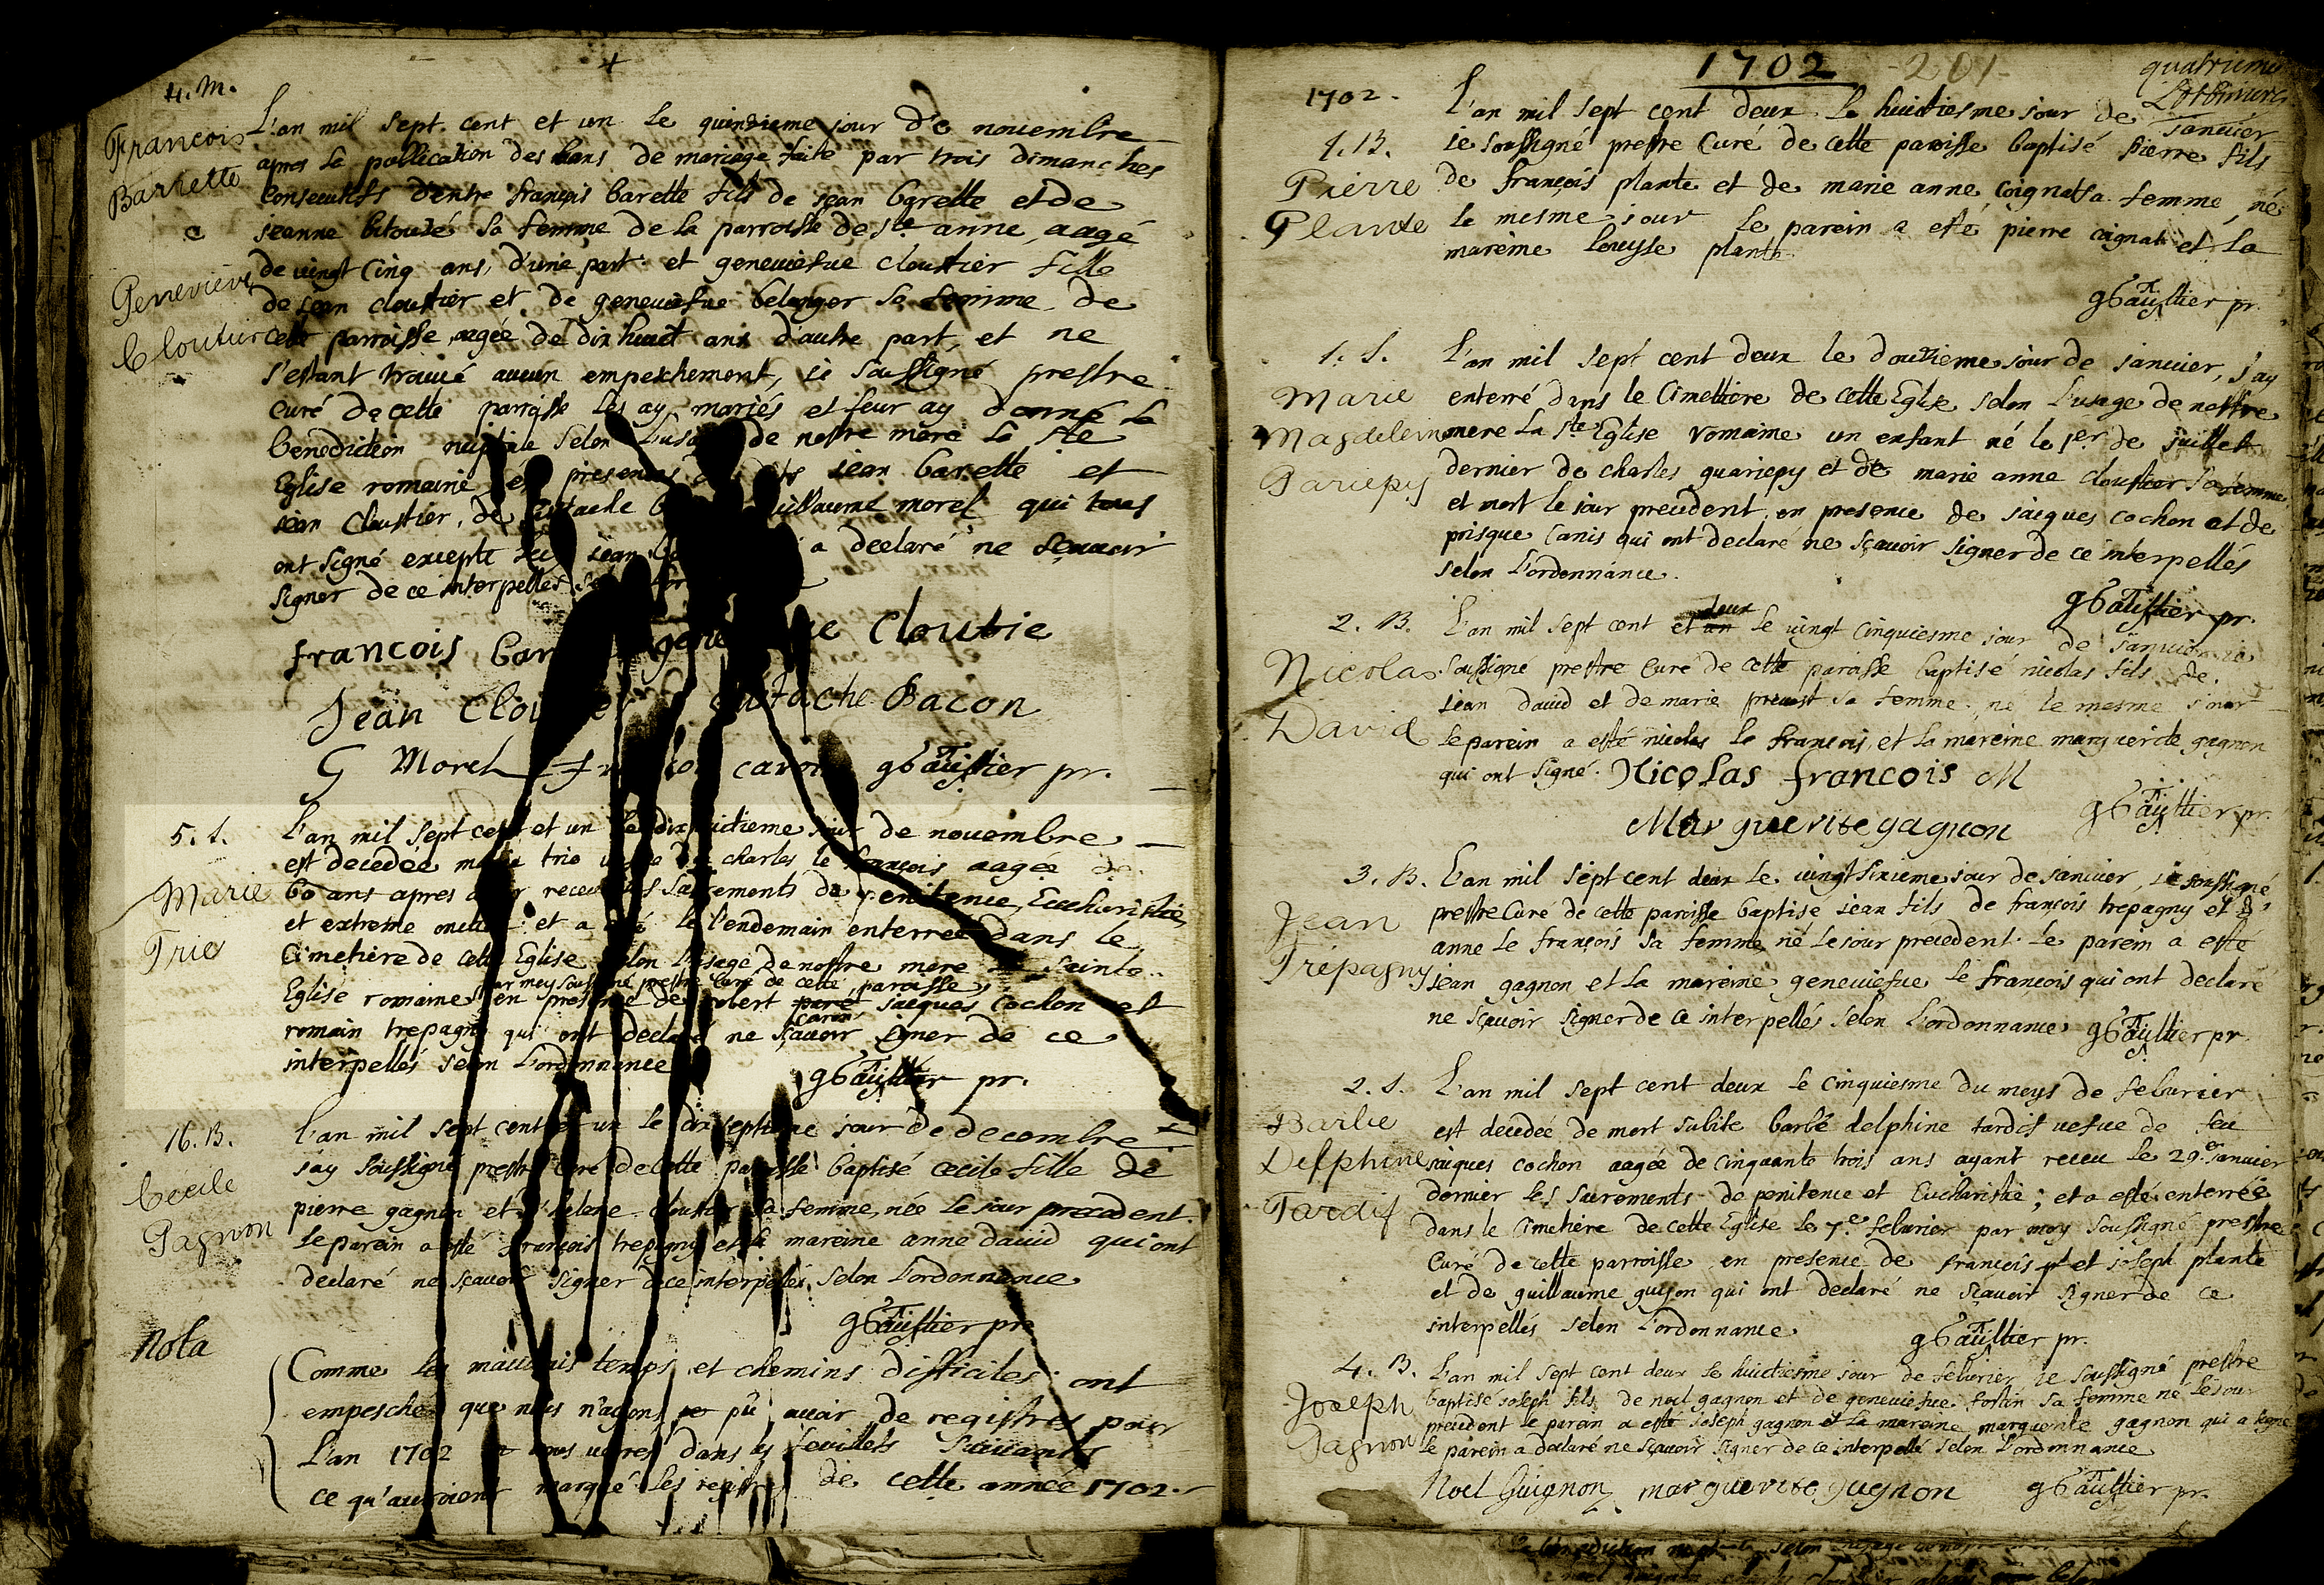 4
4. M.
François
Barrette
e
Genevieve
Cloutier
L'an mil sept. cent et un le quinzieme jour de nouembre
apres la publication des bans de mariage faite par trois dimanches
consecutifs d'entre françois barette fils de jean barette et de
jeanne bitouzé sa femme de la parroisse de ste anne, aagé
de vingt cinq ans, d'une part et geneuiefue cloustier fille
de jean cloustier et de geneuiefue belanger sa femme de
cette parroisse, aagée de dix huict ans d'autre part, et ne
s'estant trouué aucun empeschement, ie soussigné prestre
curé de cette parroisse les ay mariés et leur ay donné la
benediction nuptiale selon l'usage de nostre mere la ste
Eglise romaine en presences jean barette et
jean Cloustier, de Eustache guillaume morel qui tous
ont signé excepté jean a declaré ne sçauoir
signer de ce interpellés
francois bar gene ue Cloutie
Jean Clou Eustache Bacon
G Morel caron gGaultier pr.
5. S.
Marie
Trio
L'an mil sept cent et un le dix huictieme jour de nouembre
est decedée marie trio veufue de charles le françois aagée de
60 ans apres auoir receu les sacrements de penitence, Eucharistie
et extreme onction et a esté le l'endemain enterrée dans le
Cimetiere de cette Eglise selon l'usage de nostre mere la Sainte
par moy soussigné prestre curé de cette paroisse
Eglise romaine en presence de robert paré jacques Cochon et
caron
romain trepagny qui ont declaré ne sçauoir signer de ce
interpellés selon l'ordonnance
gGaultier pr.
16. B.
Cecile
Gagnon
L'an mil sept cent et un le dix septieme jour de decembre
j'ay soussigné prestre curé de cette paroisse baptisé cecile fille de
pierre gagnon et d'helene cloustier sa femme, née le jour precedent.
le parein a esté françois trepagny et la mareine anne dauid qui ont
declaré ne sçauoir signer de ce interpellés selon l'ordonnance
gGaultier pr
Nota
Comme les mauuais temps et chemins difficiles ont
empesché que nous n'ayons pû auoir de registres pour
L'an 1702 nous verres dans les feuillets suiuants
ce qu'auroient marqué les registres de cette année 1702.
1702 -201-
quatrieme
1702.
1. B.
Pierre
Plante
L'an mil sept cent deux le huictiesme jour de januier
ie soussigné prestre Curé de cette paroisse baptisé pierre fils
de françois plante et de marie anne coignat sa femme, né
le mesme jour le parein a esté pierre coignat et la
mareine louyse plante
gGaultier pr.
1. S.
Marie
Magdeleine
Gariepy
L'an mil sept cent deux le douzieme jour de januier, j'ay
enterré dans le Cimettiere de cette Eglise selon l'usage de nostre
mere la Ste Eglise romaine un enfant né le 1er de juillet
dernier de charles guariepy et de marie anne cloustier sa femme
et mort le jour precedent, en presence de jacques cochon et de
prisque Canis qui ont declaré ne sçauoir signer de ce interpellés
selon l'ordonnance.
gGaultier pr.
2. B.
Nicolas
David
deux
L'an mil sept cent et un le vingt cinquiesme jour de januier ie
soussigné prestre curé de cette paroisse baptisé nicolas fils de
jean dauid et de marie preuost sa femme, né le mesme jour
le parein a esté nicolas le françois, et la mareine marguerite gagnon
qui ont signé. Nicolas francois M
gGaultier pr.
Marguerite gagnon
3. B.
Jean
Trépagny
L'an mil sept cent deux le vingt sixieme jour de januier, ie soussigné
prestre Curé de cette paroisse baptisé jean fils de françois trepagny et d'
anne le françois sa femme né le jour precedent. le parein a esté
jean gagnon et la mareine geneuiefue le françois qui ont declaré
ne sçauoir signer de ce interpellés selon l'ordonnance gGaultier pr.
2. S.
Barbe
Delphine
Tardif
L'an mil sept cent deux le cinquiesme du moys de feburier
est decedée de mort subite barbe delphine tardif vefue de feu
jacques cochon aagée de cinquante trois ans ayant receu le 29e januier
dernier les sacrements de penitence et Eucharistie; et a esté enterrée
dans le Cimetiere de cette Eglise le 7e feburier par moy soussigné prestre
Curé de cette parroisse en presence de françois et joseph plante
et de guillaume guyon qui ont declaré ne sçauoir signer de ce
interpellés selon l'ordonnance
gGaultier pr.
4. B.
Joseph
Gagnon
L'an mil sept cent deux le huictiesme jour de feburier ie soussigné prestre
baptisé joseph fils de noel gagnon et de geneuiefue fortin sa femme né le jour
precedent le parein a esté joseph gagnon et la mareine marguerite gagnon qui a signé
le parein a declaré ne sçauoir signer de ce interpellé selon l'ordonnance
Noel Guignon marguerite gugnon gGaultier pr.